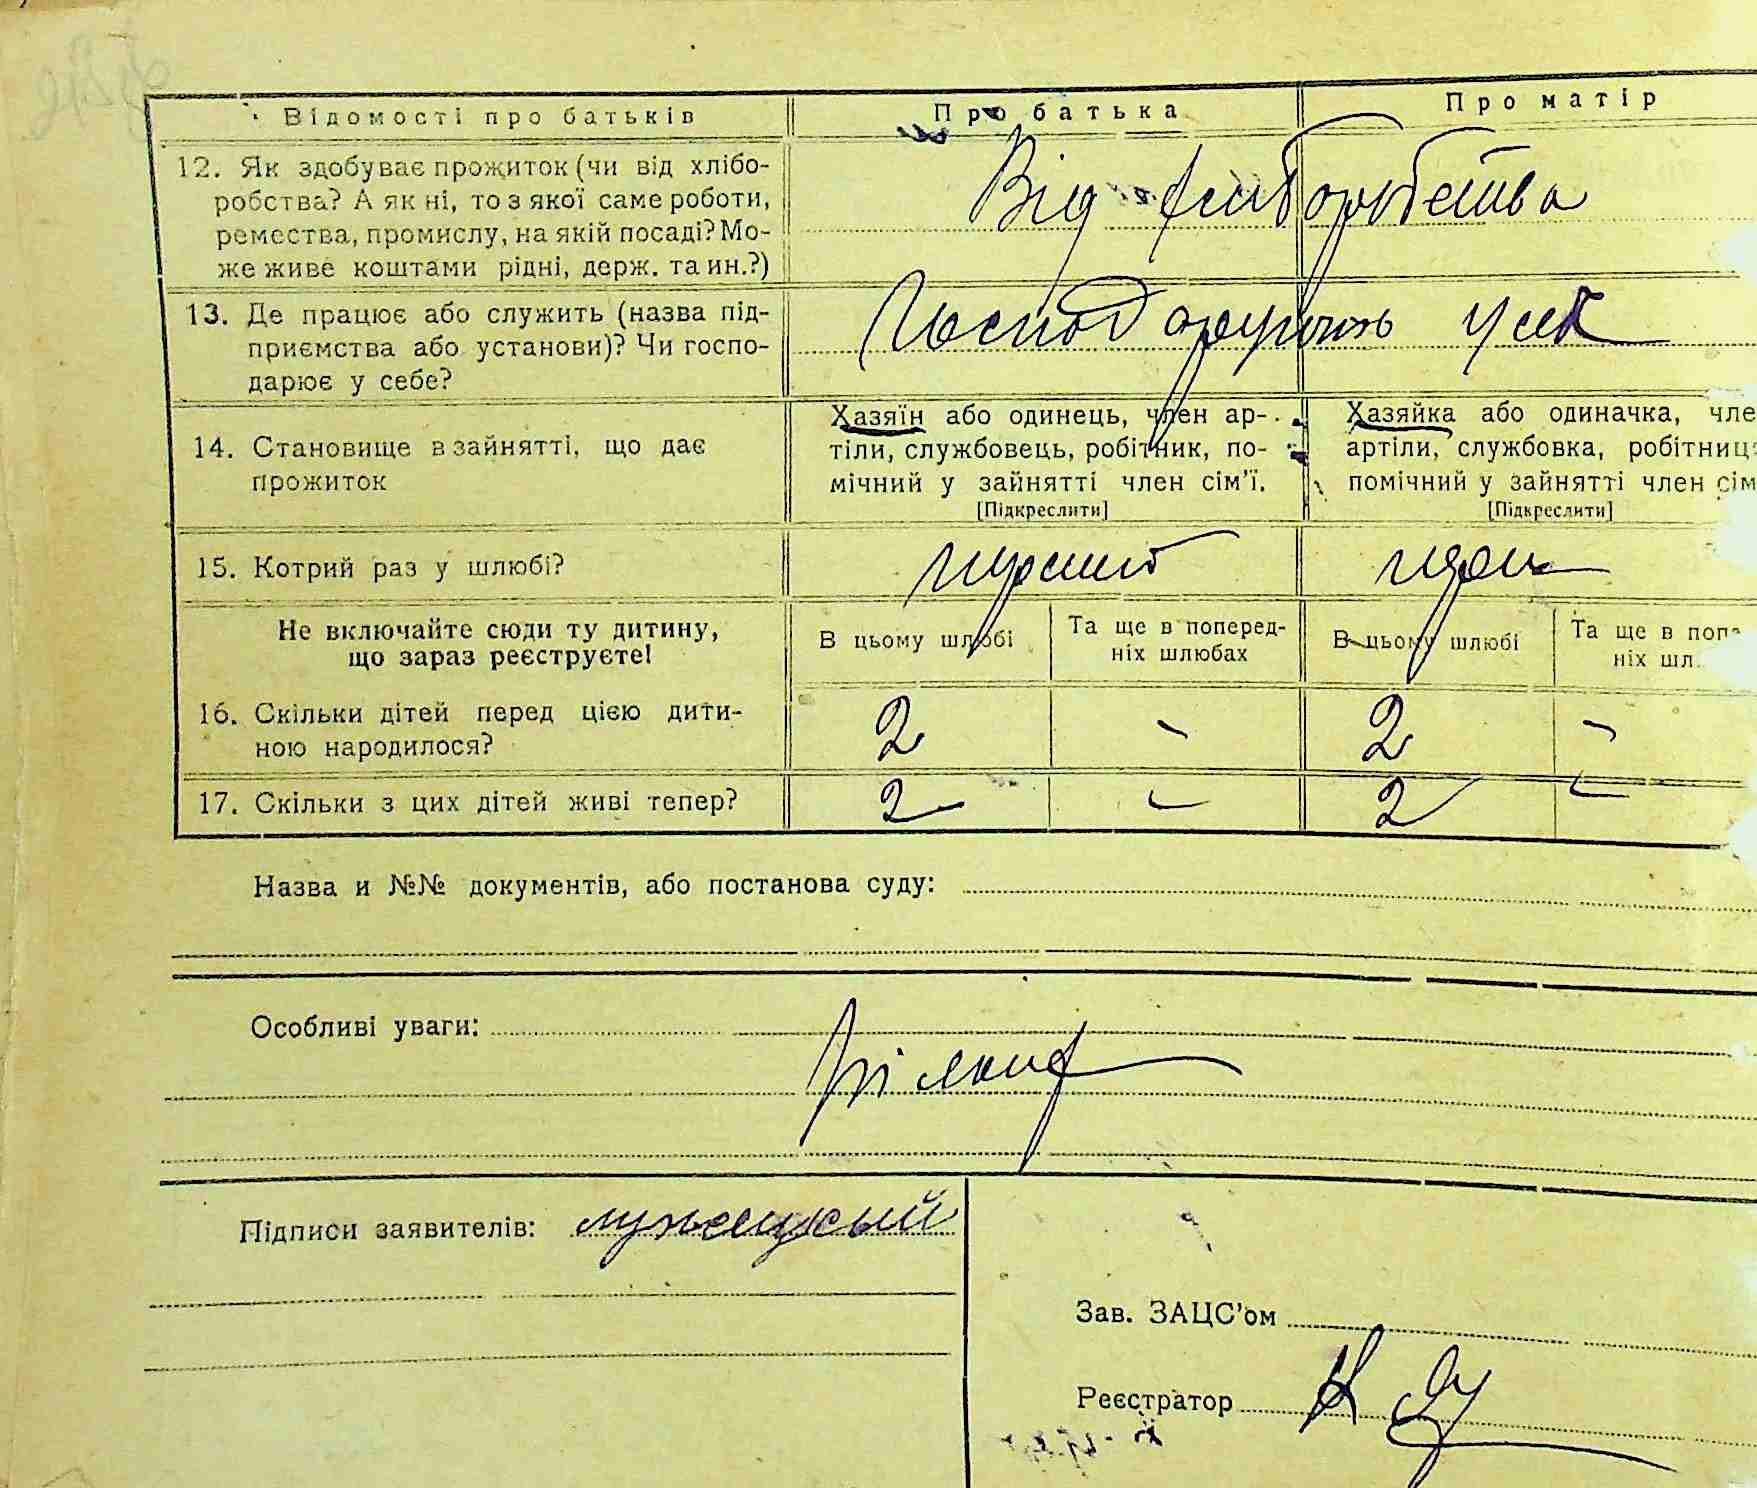 Відомості про батьків
Про батька
Про матір
12. Як здобуває прожиток (чи від хлібо-
робства? А як ні, то з якої саме роботи,
ремества, промислу, на якій посаді? Мо-
же живе коштами рідні, держ. та ин.?)
Від хліборобства
13. Де працює або служить (назва під-
приємства або установи)? Чи госпо-
дарює у себе?
Господарюють у себе
14. Становище в зайнятті, що дає
прожиток
Хазяїн або одинець, член ар-
тіли, службовець, робітник, по-
мічний у зайнятті член сім'ї.
[Підкреслити]
Хазяйка або одиначка, чле
артіли, службовка, робітниц
помічний у зайнятті член сім
[Підкреслити]
15. Котрий раз у шлюбі?
перший
Не включайте сюди ту дитину,
що зараз реєструєте!
В цьому шлюбі
Та ще в поперед-
ніх шлюбах
В цьому шлюбі
Та ще в поп
ніх шл
16. Скільки дітей перед цією дити-
ною народилося?
2 - 2 -
17. Скільки з цих дітей живі тепер?
2 - 2 -
Назва и №№ документів, або постанова суду:
Особливі уваги:
Підписи заявителів: лужецкий
Зав. ЗАЦС'ом
Реєстратор